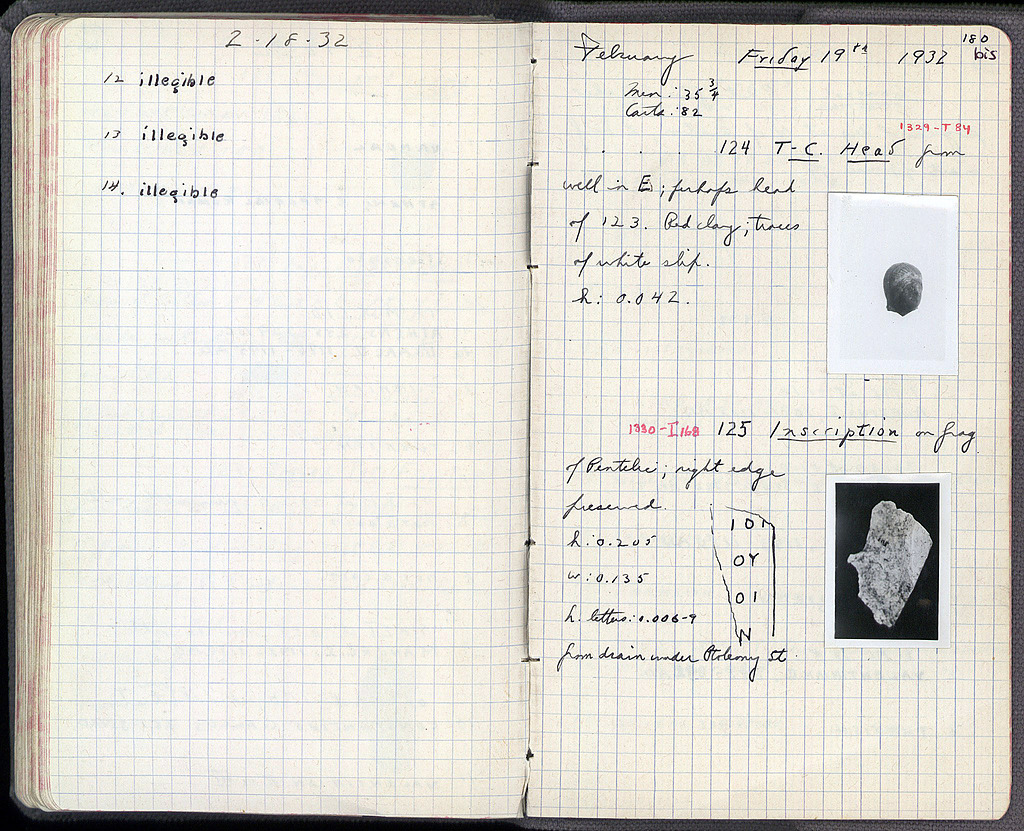 2-18-32
12 illegible
13 illegible
14. illegible
180
bis
February Friday 19th 1932
Men: 35 3/4
Carts: 82
1329-T 84
. . . . 124 T-C. Head from
well in E; perhaps head
of 123. Red clay; traces
of white slip.
h: 0.042.
1330-I 168 125 Inscription on frag.
of Pentelic; right edge
preserved.
h: 0.205
w: 0.135
h. letters: 0.006-9
ΙΟΙ
ΟΥ
ΟΙ
Ν
from drain under Ptolemy St.